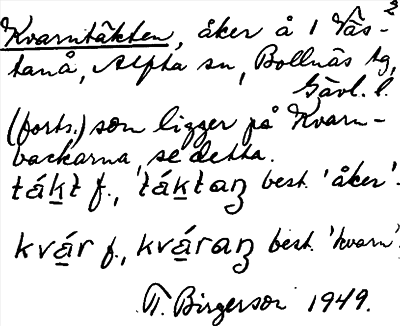 Kvarntäkten, åker å 1 Väs-²
tanå, Alfta sn, Bollnäs tg,
Gävl. l.
(forts.) som ligger på Kvarn-
backarna, se detta.
tákt f., táktaŋ best. 'åker'.
kvár f., kváraŋ best. 'kvarn'.
T. Birgerson 1949.